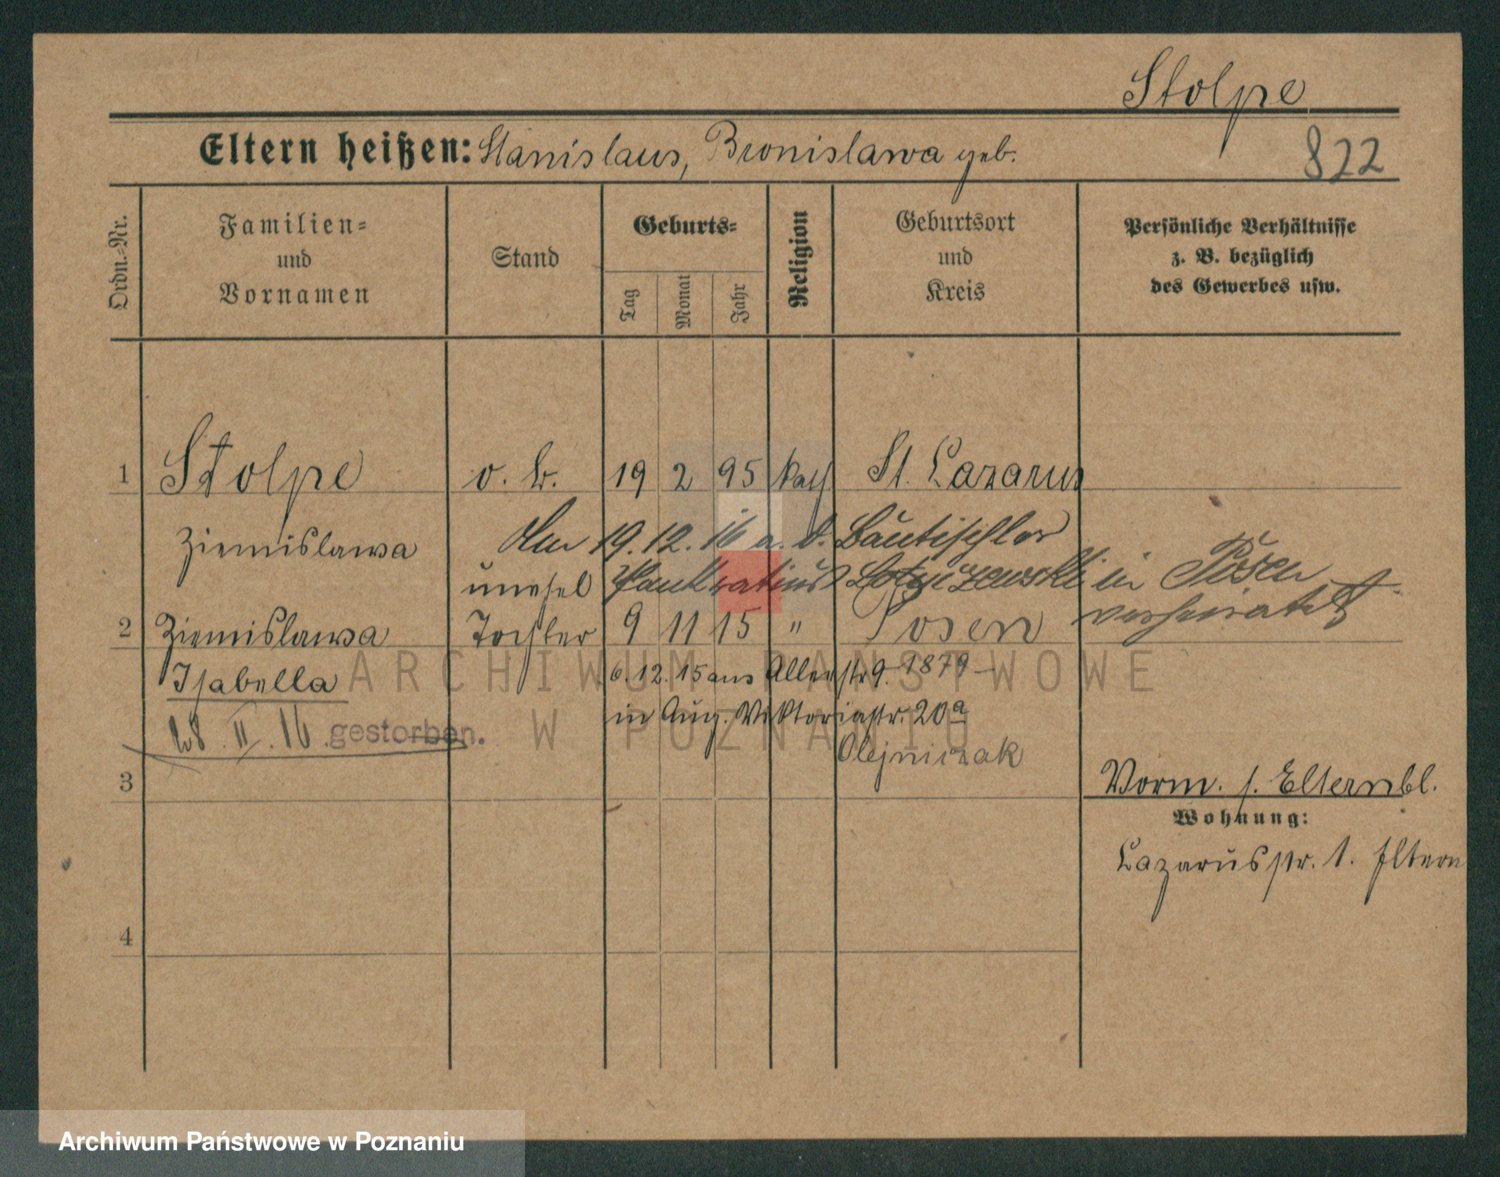 Stolpe
Eltern heißen: Stanislaus, Bronislawa geb.
822
Ordn.-Nr.
Familien=
und
Vornamen
Stand
Geburts=
Tag
Monat
Jahr
Religion
Geburtsort
und
Kreis
Persönliche Verhältnisse
z. B. bezüglich
des Gewerbes usw.
1 Stolpe o. B. 19 2 95 kath St. Lazarus
Ziemislawa Am 19.12.16 m. d. Bautischler
unehel Pankratius in Posen
verheiratet
2 Ziemislawa Tochter 9 11 15 " Posen
Isabella 6.12.15 aus Allerstr 9 - 1879 -
in Aug. Viktoriastr. 20a
28. II. 16 gestorben.
Olejniczak
3
Vorm. s. Elternbl.
Wohnung:
Lazarusstr. 1. Eltern
4
ARCHIWUM PAŃSTWOWE
W POZNANIU
Archiwum Państwowe w Poznaniu